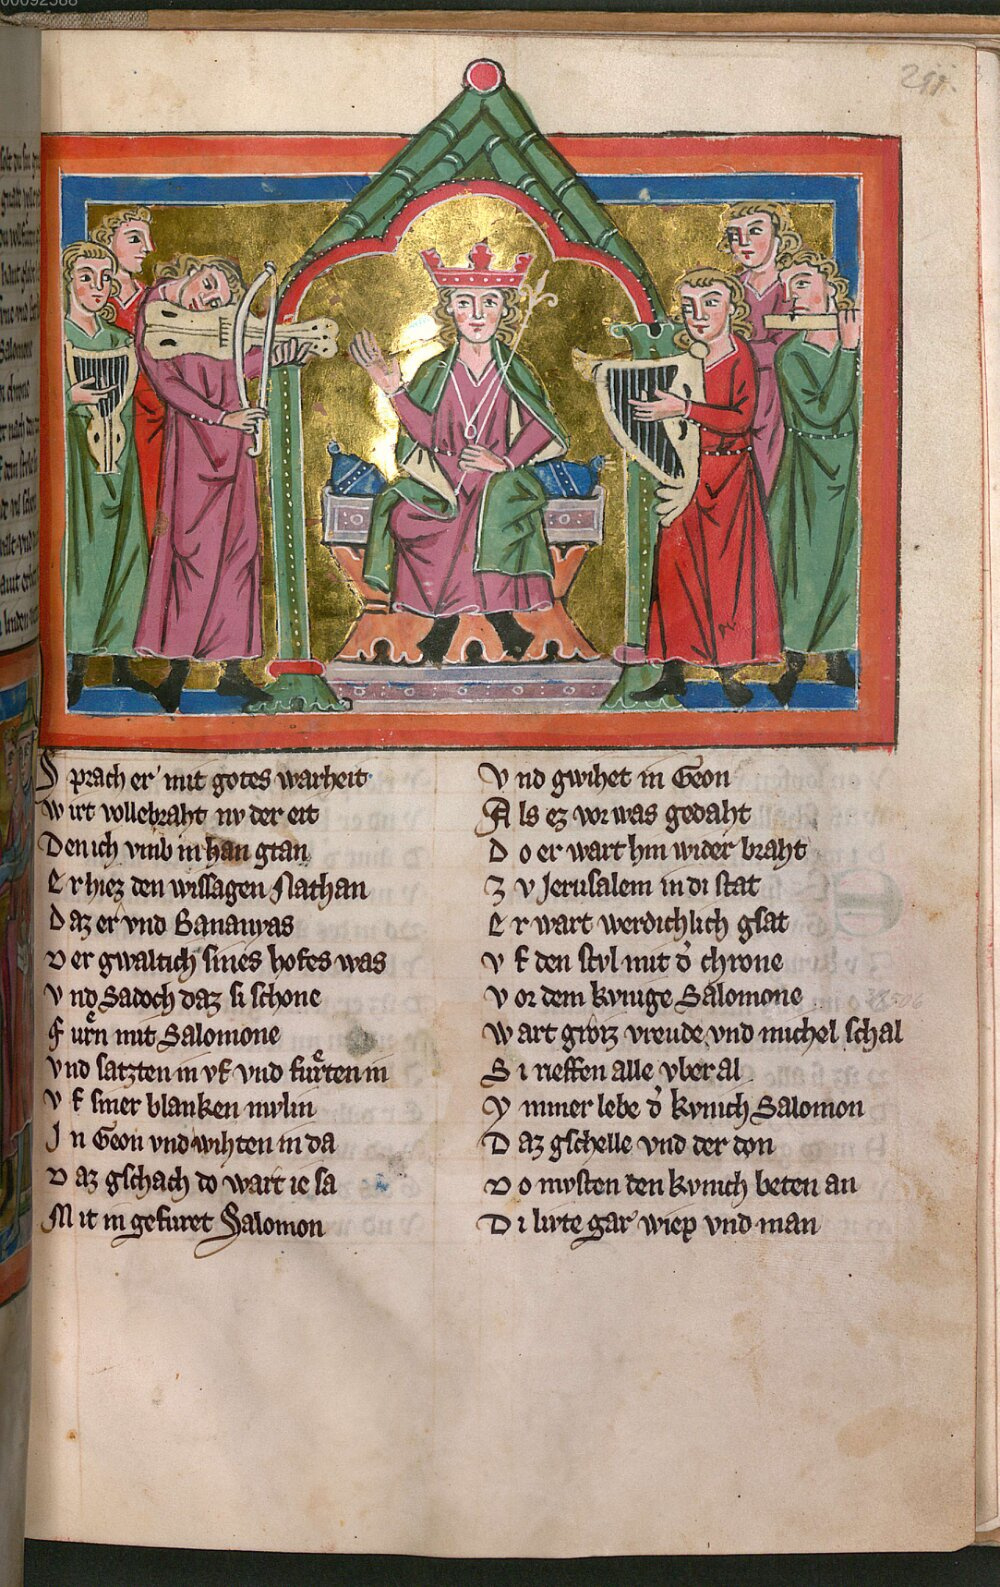 00092588
S prach er mit gotes warheit
W irt vollebraht nv der eit
D en ich vmb in han gtan
E r hiez den wissagen Nathan
D az er vnd Bananyas
D er gwaltich sines hofes was
V nd Sadoch daz si schone
F urn mit Salomone
Vnd satzten in vf vnd furten in
V f siner blanken mvlin
I n Geon vnd wihten in da
D az gschach do wart ie sa
M it in gefuret Salomon
V nd gwihet in Geon
A ls ez vor was gedaht
D o er wart hin wider braht
Z v Jerusalem in di stat
E r wart werdichlich gsat
V f den stvl mit d̾ chrone
V or dem kvnige Salomone
W art groz vreude vnd michel schal
S i rieffen alle vber al
Y mmer lebe d̾ kvnich Salomon
D az gschelle vnd der don
D o mvsten den kvnich beten an
D i livte gar wiep vnd man